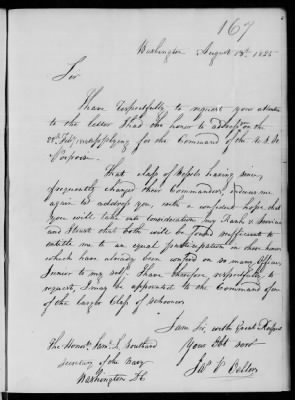 167
Washington August 13th 1825
Sir
I have respectfully to request your attention
to the letter I had the honor to address on the
28th Feby, reapplying for the Command of the U.S. Sr
Porpoise.
That class of Vessels having since,
frequently changed their Commanders, induces me
again to address you, with a confident hope, that
you will take into consideration my Rank & Services
and I trust that both will be found sufficient to
entitle me to an equal participation in those honors
which have already been conferred on so many Officers,
Junior to my self. I have therefore, respectfully, to
request, I may be appointed to the Command of one
of the larger Class of schooners
I am Sir, with Great Respect
The Honorl. Saml. L. Southard Your Obt servt
Secretary of the Navy
Washington